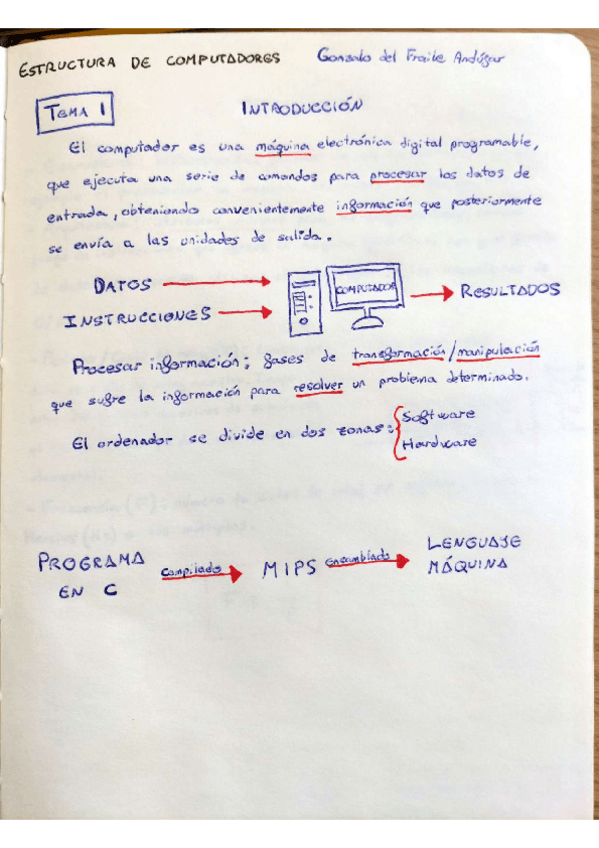 ESTRUCTURA DE COMPUTADORES Gonzalo del Fraile Andújar
TEMA 1 INTRODUCCIÓN
El computador es una máquina electrónica digital programable,
que ejecuta una serie de comandos para procesar los datos de
entrada, obteniendo convenientemente información que posteriormente
se envía a las unidades de salida.
DATOS
INSTRUCCIONES
COMPUTADOR
RESULTADOS
Procesar información; fases de transformación/manipulación
que sufre la información para resolver un problema determinado.
El ordenador se divide en dos zonas:
Software
Hardware
PROGRAMA
EN C
Compilado
MIPS
Ensamblado
LENGUAJE
MÁQUINA